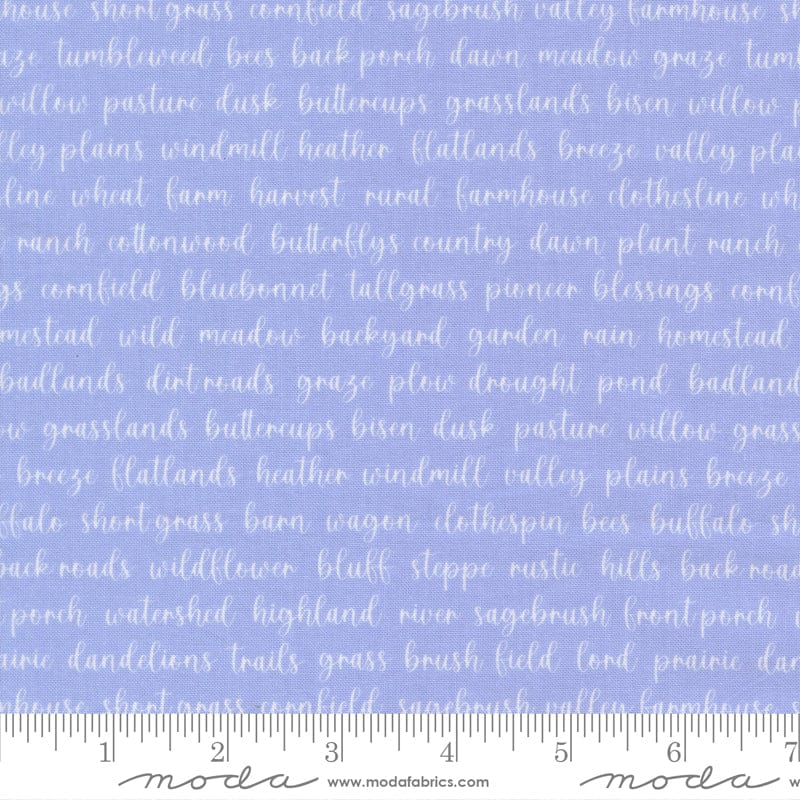 house short grass cornfield sagebrush valley farmhouse sh
aze tumbleweed bees back porch dawn meadow graze tum
willow pasture dusk buttercups grasslands bisen willow p
lley plains windmill heather flatlands breeze valley plai
line wheat farm harvest rural farmhouse clothesline wh
ranch cottonwood butterflys country dawn plant ranch
gs cornfield bluebonnet tallgrass pioneer blessings cornf
mestead wild meadow backyard garden rain homestead
badlands dirt roads graze plow drought pond badland
ow grasslands buttercups bisen dusk pasture willow grass
breeze flatlands heather windmill valley plains breeze
ffalo short grass barn wagon clothespin bees buffalo sh
back roads wildflower bluff steppe rustic hills back road
porch watershed highland river sagebrush front porch
airie dandelions trails grass brush field lord prairie dan
house short grass cornfield sagebrush valley farmhouse s
1 2 3 4 5 6 7
moda www.modafabrics.com moda w